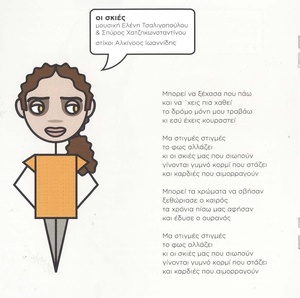 οι σκιές
μουσική Ελένη Τσαλιγοπούλου
& Σπύρος Χατζηκωνσταντίνου
στίχοι Αλκίνοος Ιωαννίδης
Μπορεί να ξέχασα που πάω
και να 'χεις πια χαθεί
το δρόμο μόνη μου τραβάω
κι εσύ έχεις κουραστεί
Μα στιγμές στιγμές
το φως αλλάζει
κι οι σκιές μας που σιωπούν
γίνονται γυμνό κορμί που στάζει
και καρδιές που αιμορραγούν
Μπορεί τα χρώματα να σβήσαν
ξεθώριασε ο καιρός
τα χρόνια πίσω μας αφήσαν
και έδυσε ο ουρανός
Μα στιγμές στιγμές
το φως αλλάζει
κι οι σκιές μας που σιωπούν
γίνονται γυμνό κορμί που στάζει
και καρδιές που αιμορραγούν